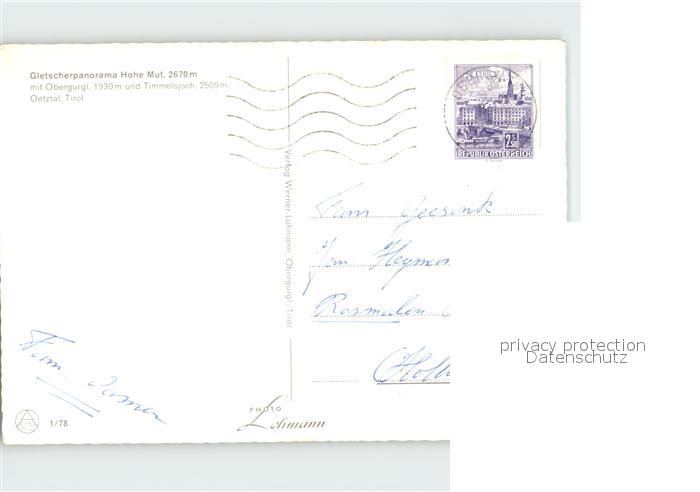 Gletscherpanorama Hohe Mut, 2670 m
mit Obergurgl, 1930 m und Timmelsjoch, 2509 m,
Oetztal, Tirol
2.50
REPUBLIK ÖSTERREICH
Verlag Werner Lohmann, Obergurgl, Tirol
Fam Geesink
Jan
Rosmalen
Holl
privacy protection
Datenschutz
Fam.
1/78
PHOTO
Lohmann